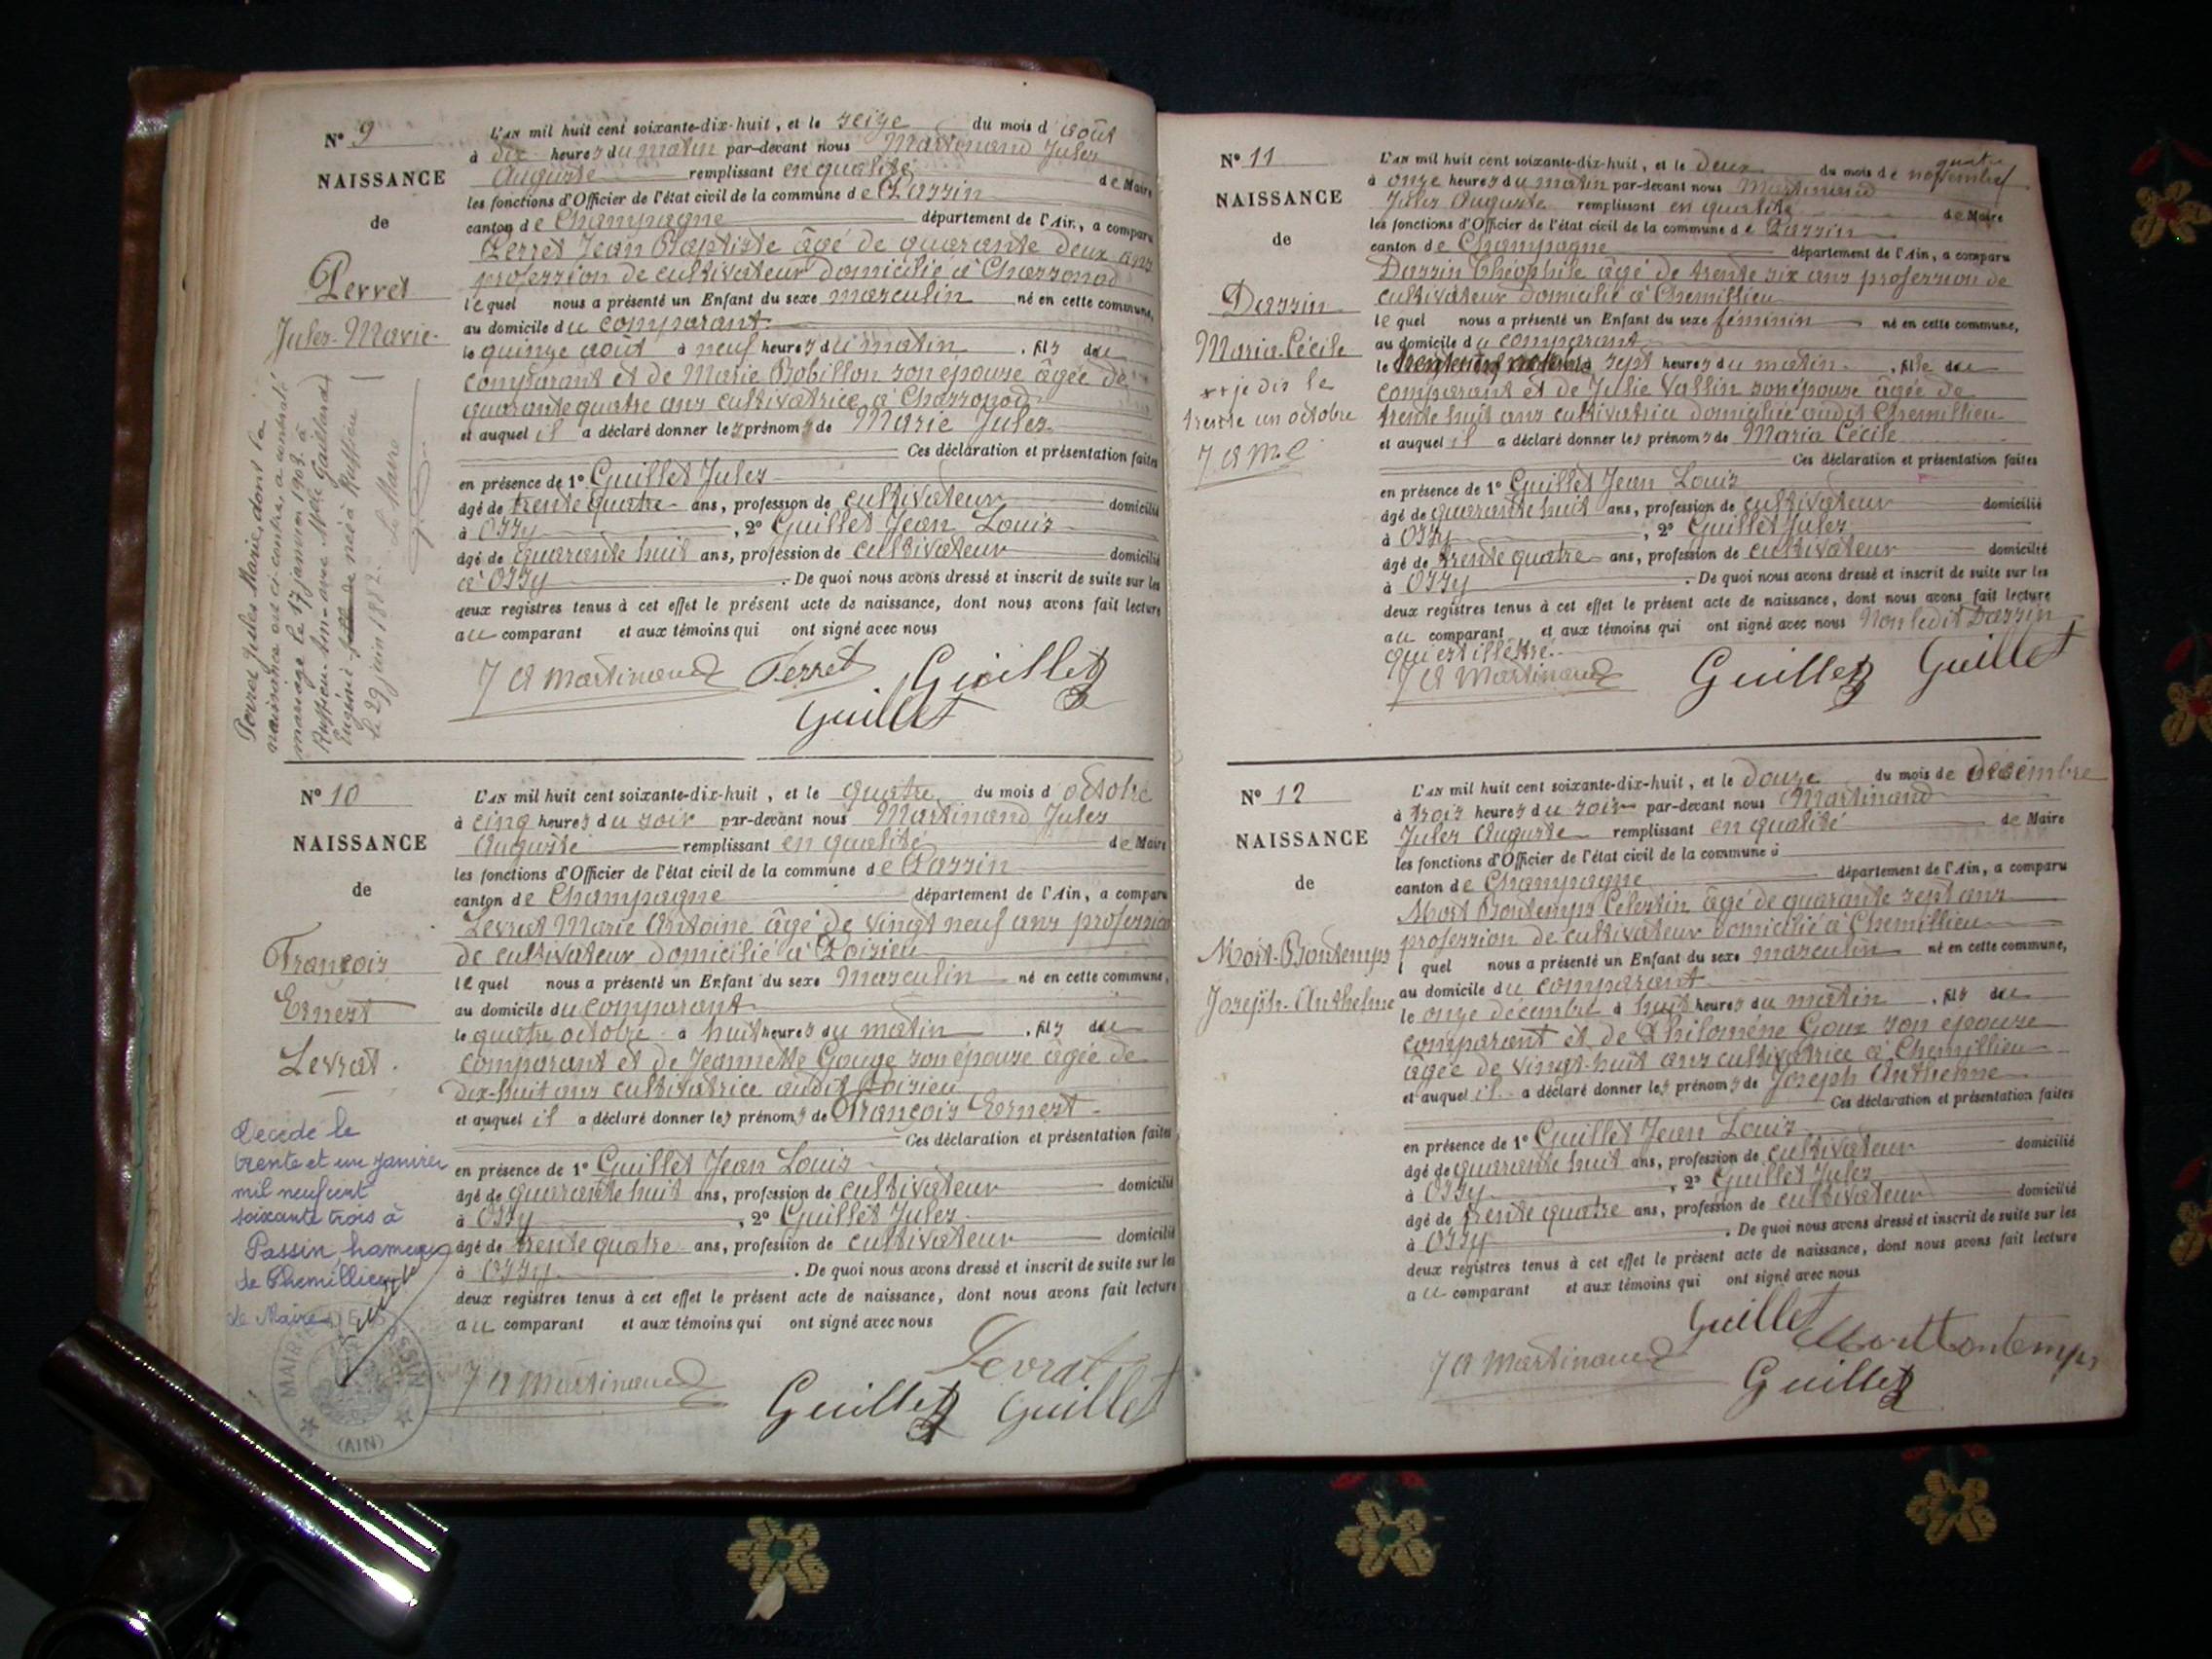 N° 9
NAISSANCE
de
Perret
Jules-Marie
Perret Jules Marie, dont la
naissance est ci-contre, a contracté
mariage le 17 janvier 1903 à
Ruffieu avec Melle Gaillard
Eugénie née à Ruffieu
le 29 juin 1882.
Le Maire
L'AN mil huit cent soixante-dix-huit, et le seize du mois d'août
à dix heures du matin par-devant nous Martinand Jules
Auguste remplissant en qualité de Maire
les fonctions d'Officier de l'état civil de la commune de Passin
canton de Champagne département de l'Ain, a comparu
Perret Jean Baptiste âgé de quarante deux ans
profession de cultivateur domicilié à Chassonod
lequel nous a présenté un Enfant du sexe masculin né en cette commune,
au domicile du comparant
le quinze août à neuf heures du matin, fils du
comparant et de Marie Bobillon son épouse âgée de
quarante quatre ans cultivatrice à Chassonod
et auquel il a déclaré donner les prénoms de Marie Jules
Ces déclaration et présentation faites
en présence de 1° Guillet Jules
âgé de trente quatre ans, profession de cultivateur domicilié
à Ossy, 2° Guillet Jean Louis
âgé de quarante huit ans, profession de cultivateur domicilié
à Ossy. De quoi nous avons dressé et inscrit de suite sur les
deux registres tenus à cet effet le présent acte de naissance, dont nous avons fait lecture
au comparant et aux témoins qui ont signé avec nous
J A Martinand Perret Guillet
Guillet
N° 10
NAISSANCE
de
François
Ernest
Levrat.
Décédé le
trente et un janvier
mil neuf cent
soixante trois à
Passin, hameau
de Chemillieu
Le Maire
MAIRIE DE PASSIN
(AIN)
L'AN mil huit cent soixante-dix-huit, et le quatre du mois d'octobre
à cinq heures du soir par-devant nous Martinand Jules
Auguste remplissant en qualité de Maire
les fonctions d'Officier de l'état civil de la commune de Passin
canton de Champagne département de l'Ain, a comparu
Levrat Marie Antoine âgé de vingt neuf ans profession
de cultivateur domicilié à Poisieu
lequel nous a présenté un Enfant du sexe masculin né en cette commune,
au domicile du comparant
le quatre octobre à huit heures du matin, fils du
comparant et de Jeannette Gouge son épouse âgée de
dix-huit ans cultivatrice audit Poisieu
et auquel il a déclaré donner les prénoms de François Ernest
Ces déclaration et présentation faites
en présence de 1° Guillet Jean Louis
âgé de quarante huit ans, profession de cultivateur domicilié
à Ossy, 2° Guillet Jules
âgé de trente quatre ans, profession de cultivateur domicilié
à Ossy. De quoi nous avons dressé et inscrit de suite sur les
deux registres tenus à cet effet le présent acte de naissance, dont nous avons fait lecture
au comparant et aux témoins qui ont signé avec nous
Levrat
J A Martinand Guillet Guillet
N° 11
NAISSANCE
de
Dassin
Maria-Cécile
++ je dis le
trente un octobre
J A M
quatre
L'AN mil huit cent soixante-dix-huit, et le deux du mois de novembre
à onze heures du matin par-devant nous Martinand
Jules Auguste remplissant en qualité de Maire
les fonctions d'Officier de l'état civil de la commune de Passin
canton de Champagne département de l'Ain, a comparu
Dassin Théophile âgé de trente six ans profession de
cultivateur domicilié à Chemillieu
lequel nous a présenté un Enfant du sexe féminin né en cette commune,
au domicile du comparant
le à sept heures du matin, fille du
comparant et de Julie Vallin son épouse âgée de
trente huit ans cultivatrice domiciliée audit Chemillieu
et auquel il a déclaré donner les prénoms de Maria Cécile
Ces déclaration et présentation faites
en présence de 1° Guillet Jean Louis
âgé de quarante huit ans, profession de cultivateur domicilié
à Ossy, 2° Guillet Jules
âgé de trente quatre ans, profession de cultivateur domicilié
à Ossy. De quoi nous avons dressé et inscrit de suite sur les
deux registres tenus à cet effet le présent acte de naissance, dont nous avons fait lecture
au comparant et aux témoins qui ont signé avec nous Non ledit Dassin
qui est illétré.
J A Martinand Guillet Guillet
N° 12
NAISSANCE
de
Mort-Bontemps
Joseph-Anthelme
L'AN mil huit cent soixante-dix-huit, et le douze du mois de décembre
à trois heures du soir par-devant nous Martinand
Jules Auguste remplissant en qualité de Maire
les fonctions d'Officier de l'état civil de la commune d
canton de Champagne département de l'Ain, a comparu
Mort Bontemps Célestin âgé de quarante sept ans
profession de cultivateur domicilié à Chemillieu
l quel nous a présenté un Enfant du sexe masculin né en cette commune,
au domicile du comparant
le onze décembre à huit heures du matin, fils du
comparant et de Philomène Goux son épouse
âgée de vingt-huit ans cultivatrice à Chemillieu
et auquel il a déclaré donner les prénoms de Joseph Anthelme
Ces déclaration et présentation faites
en présence de 1° Guillet Jean Louis
âgé de quarante huit ans, profession de cultivateur domicilié
à Ossy, 2° Guillet Jules
âgé de trente quatre ans, profession de cultivateur domicilié
à Ossy. De quoi nous avons dressé et inscrit de suite sur les
deux registres tenus à cet effet le présent acte de naissance, dont nous avons fait lecture
au comparant et aux témoins qui ont signé avec nous
Guillet Mort Bontemps
J A Martinand Guillet